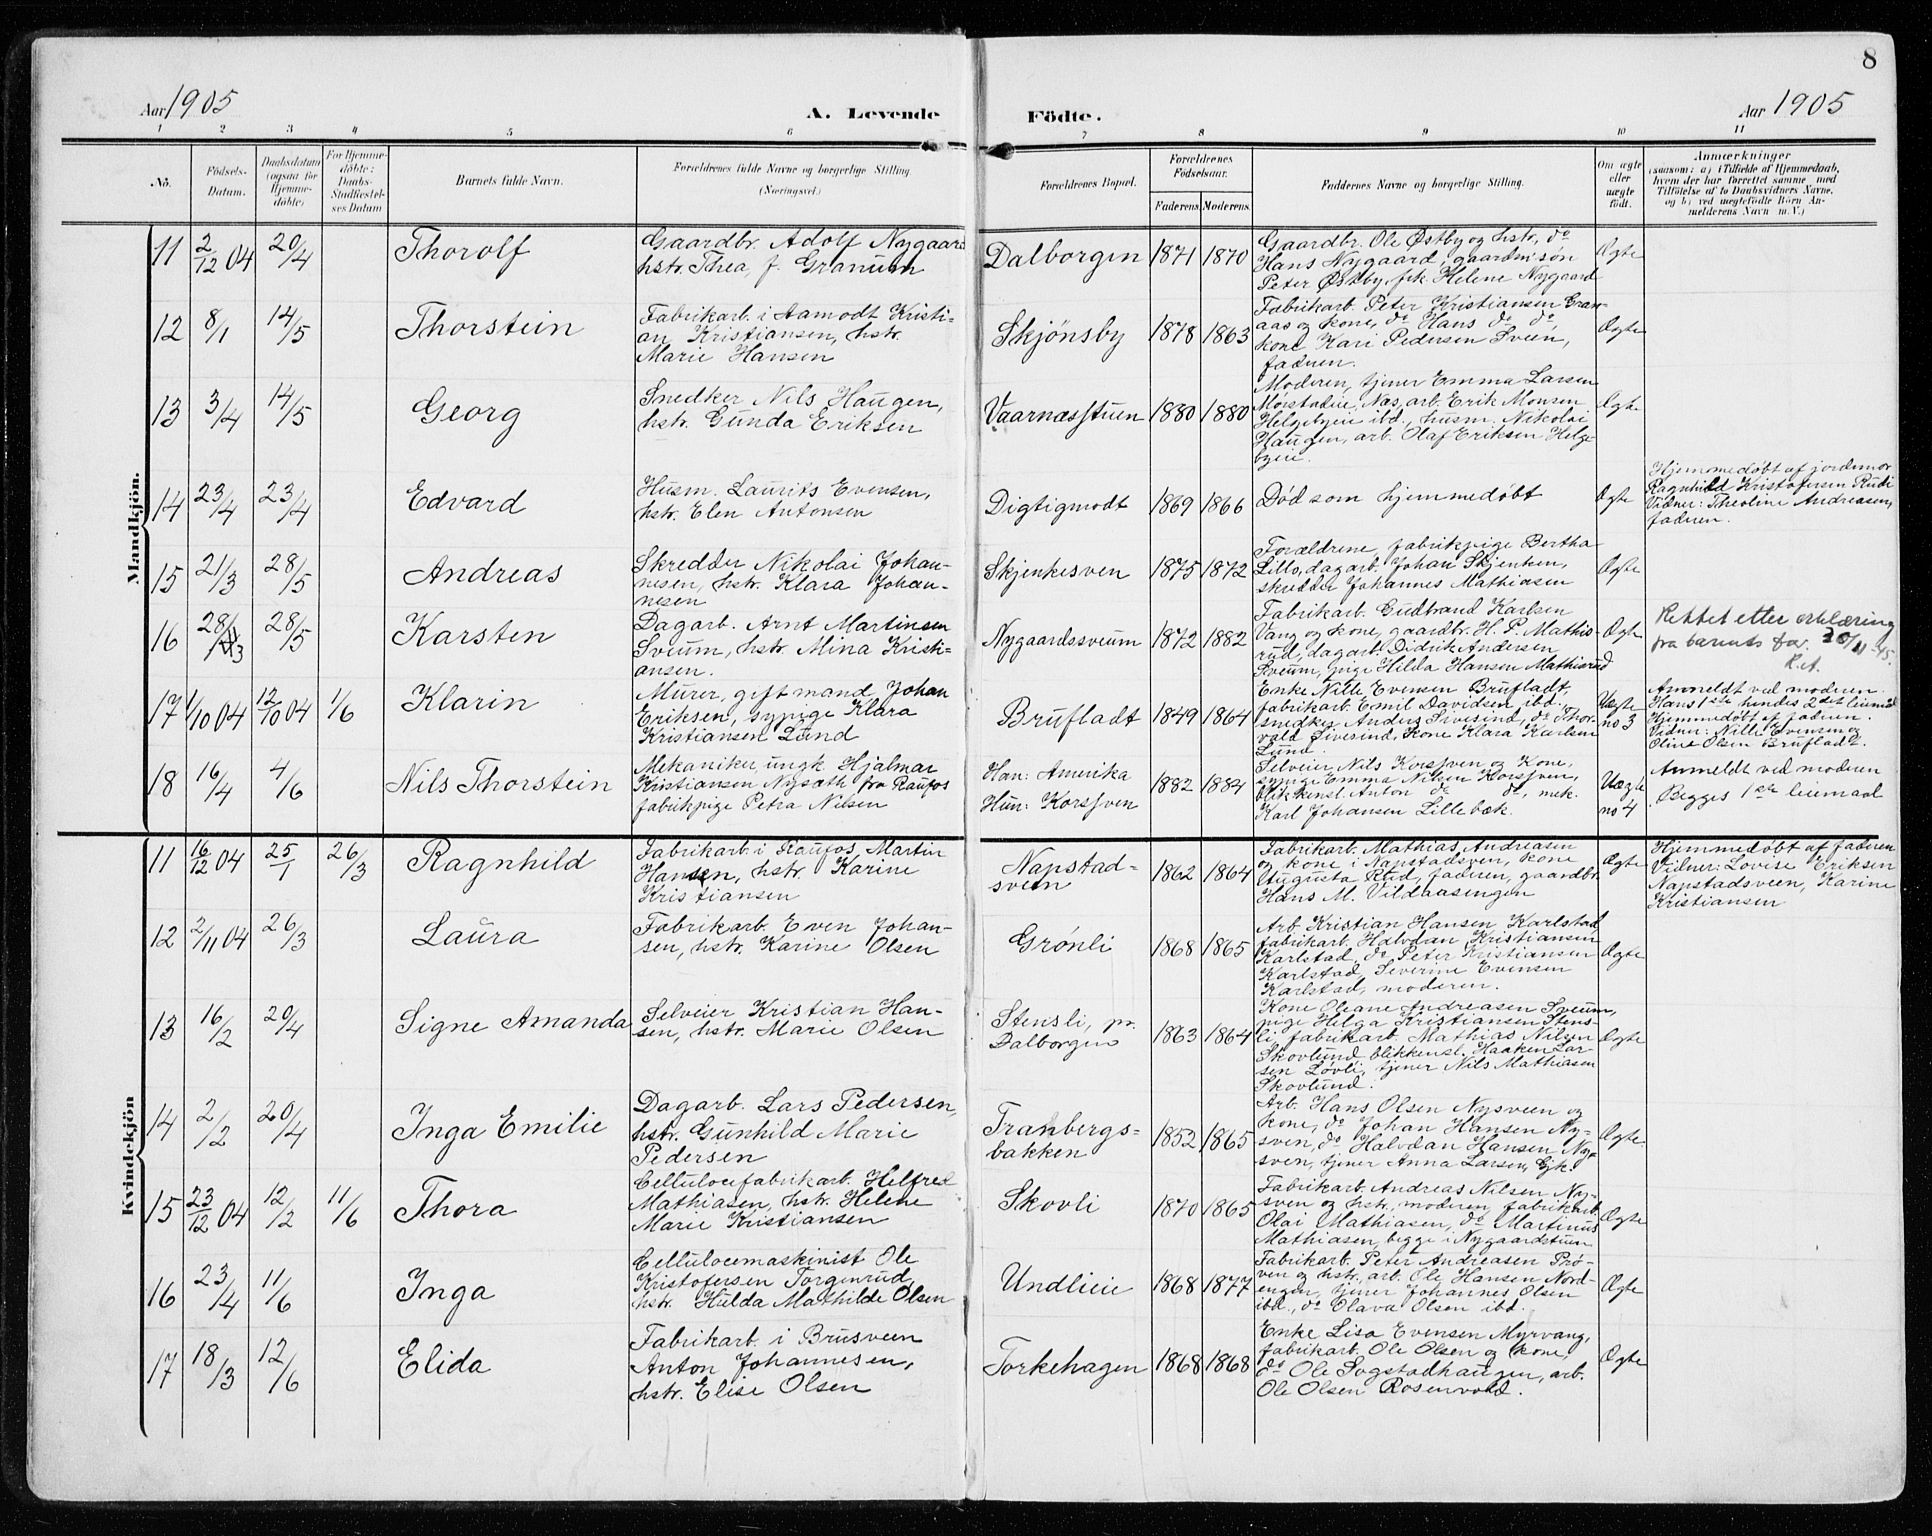 8
Aar 1905
A. Levende
Födte.
Aar 1905
1 2 3 4 5 6 7 8 9 10 11
No.
Födsels-
Datum.
Daabsdatum
(ogsaa for
Hjemme-
döbte)
For Hjemme-
döbte:
Daabs-
Stadfæstel-
ses Datum
Barnets fulde Navn.
Forældrenes fulde Navne og borgerlige Stilling.
(Næringsvei.)
Forældrenes Bopæl.
Forældrenes
Födselsaar.
Faderens. Moderens.
Faddernes Navne og borgerlige Stilling.
Om ægte
eller
uægte
födt.
Anmærkninger
(saasom: a) i Tilfælde af Hjemmedaab,
hvem der har forrettet samme med
Tilföielse af to Daabsvidners Navne,
og b) ved uægtefödte Börn An-
melderens Navn m. V.)
Mandkjön.
11 2/12 04 20/4 Thorolf
Gaardbr. Adolf Nygaard
hstr. Thea, f. Granum
Dalborgen 1871 1870
Gaardbr. Ole Østby og hstr., do
Hans Nygaard, gaardm.søn
Peter Østby, frk. Helene Nygaard
Ægte
12 8/1 14/5 Thorstein
Fabrikarb. i Aamodt Kristi-
an Kristiansen, hstr.
Marie Hansen
Skjønsby 1878 1863
Fabrikarb. Peter Kristiansen Gran-
aas og kone, do Hans do do,
kone Kari Pedersen Sveen,
faderen.
Ægte
13 3/4 14/5 Georg
Snedker Nils Haugen,
hstr. Gunda Eriksen
Vaarnæsstuen 1880 1880
Moderen, tjener Emma Larsen
Mørstadeie, Næs, arb. Erik Monsen
Helgebyeie ibd., husm. Nikolai
Haugen, arb. Olaf Eriksen Helge-
byeie.
Ægte
14 23/4 23/4 Edvard
Husm. Laurits Evensen,
hstr. Elen Antonsen
Digtigmodt 1869 1866
Død som hjemmedøbt
Ægte
Hjemmedøbt af jordemor
Ragnhild Kristofersen Rudi
Vidner: Theoline Andreasen,
faderen.
15 21/3 28/5 Andreas
Skredder Nikolai Johan-
nesen, hstr. Klara Johan-
nesen
Skjenkesven 1875 1872
Forældrene, fabrikpige Bertha
Lillo, dagarb. Johan Skjenken,
skredder Johannes Mathiasen
Ægte
16 28/3 28/5 Karsten
Dagarb. Arnt Martinsen
Sveum, hstr. Mina Kristi-
ansen.
Nygaardssveum 1872 1882
Fabrikarb. Gudbrand Karlsen
Vang og kone, gaardbr. H. P. Mathis-
rud, dagarb. Didrik Andersen
Sveum, pige Hilda Hansen Mathisrud
Ægte
Rettet etter erklæring
fra barnets far. 20/11-45.
R.A.
17 1/10 04 12/10 04 1/6 Klarin
Murer, gift mand, Johan
Eriksen, sypige Klara
Kristiansen Lund
Brufladt 1849 1864
Enke Nille Evensen Brufladt,
fabrikarb. Emil Davidsen ibd.,
snedker Anders Sivesind, do Thor-
vald Sivesind, kone Klara Karlsen
Lund.
Uægte
no 3
Anmeldt ved moderen.
Hans 1ste hendes 2det leiemaal
Hjemmedøbt af faderen.
Vidner: Nille Evensen og
Oline Olsen Brufladt.
18 16/4 4/6 Nils Thorstein
Mekaniker, ungk. Hjalmar
Kristiansen Nysæth fra Raufos
fabrikpige Petra Nilsen
Han: Amerika
Hun: Korssven
1882 1884
Selveier Nils Korssven og Kone,
sypige Emma Nilsen Korssven,
blikkensl. Anton do do, mek.
Karl Johansen Lillebæk.
Uægte
no 4
Anmeldt ved moderen
Begges 1ste leiemaal
Kvindekjön
11 16/12 04 25/1 26/3 Ragnhild
Fabrikarb. i Raufos, Martin
Hansen, hstr. Karine
Kristiansen
Napstad-
sveen
1862 1864
Fabrikarb. Mathias Andreasen
og kone i Napstadsven, kone
Augusta Rud, faderen, gaardbr.
Hans M. Vildaasengen
Ægte
Hjemmedøbt af faderen
Vidner: Lovise Eriksen
Napstadsveen, Karine
Kristiansen
12 2/11 04 26/3 Laura
Fabrikarb. Even Johan-
sen, hstr. Karine Olsen
Grønli 1868 1865
Arb. Kristian Hansen Karlstad
fabrikarb. Halvdan Kristiansen
Karlstad, do Peter Kristiansen
Karlstad, Severine Evensen
Karlstad, moderen.
Ægte
13 16/2 20/4 Signe Amanda
Selveier Kristian Han-
sen, hstr. Marie Olsen
Stensli, pr.
Dalborgen
1863 1864
Kone Oleane Andreasen Sveum,
pige Helga Kristiansen Stens-
li, fabrikarb. Mathias Nilsen
Skovlund, blikkensl. Haaken Lar-
sen Løvli, tjener Nils Mathiasen
Skovlund.
Ægte
14 2/2 20/4 Inga Emilie
Dagarb. Lars Pedersen,
hstr. Gunhild Marie
Pedersen
Tranbergs-
bakken
1852 1865
Arb. Hans Olsen Nysveen og
kone, do Johan Hansen Ny-
sven, do Halvdan Hansen Ny-
sven, tjener Anna Larsen, Gjk.
Ægte
15 23/12 04 12/2 11/6 Thora
Cellulocefabrikarb. Helfred
Mathiasen, hstr. Helene
Marie Kristiansen
Skovli 1870 1865
Fabrikarb. Andreas Nilsen Ny-
sven og hstr., moderen, fabrikarb.
Olai Mathiasen, do Martinus
Mathiasen, begge i Nygaardstuen
Ægte
16 23/4 11/6 Inga
Cellulocemaskinist Ole
Kristofersen Torgenrud,
hstr. Hulda Mathilde Olsen
Undlieie 1868 1877
Fabrikarb. Peter Andreasen Prø-
ven og hstr., arb. Ole Hansen Nord-
engen, tjener Johannes Olsen
ibd., do Olava Olsen ibd.
Ægte
17 18/3 12/6 Elida
Fabrikarb. i Brusveen
Anton Johannesen,
hstr. Elise Olsen
Torkehagen 1868 1868
Enke Lisa Evensen Myrvang,
fabrikarb. Ole Olsen og kone,
do Ole Sogstadhaugen, arb.
Ole Olsen Rosenvold.
Ægte